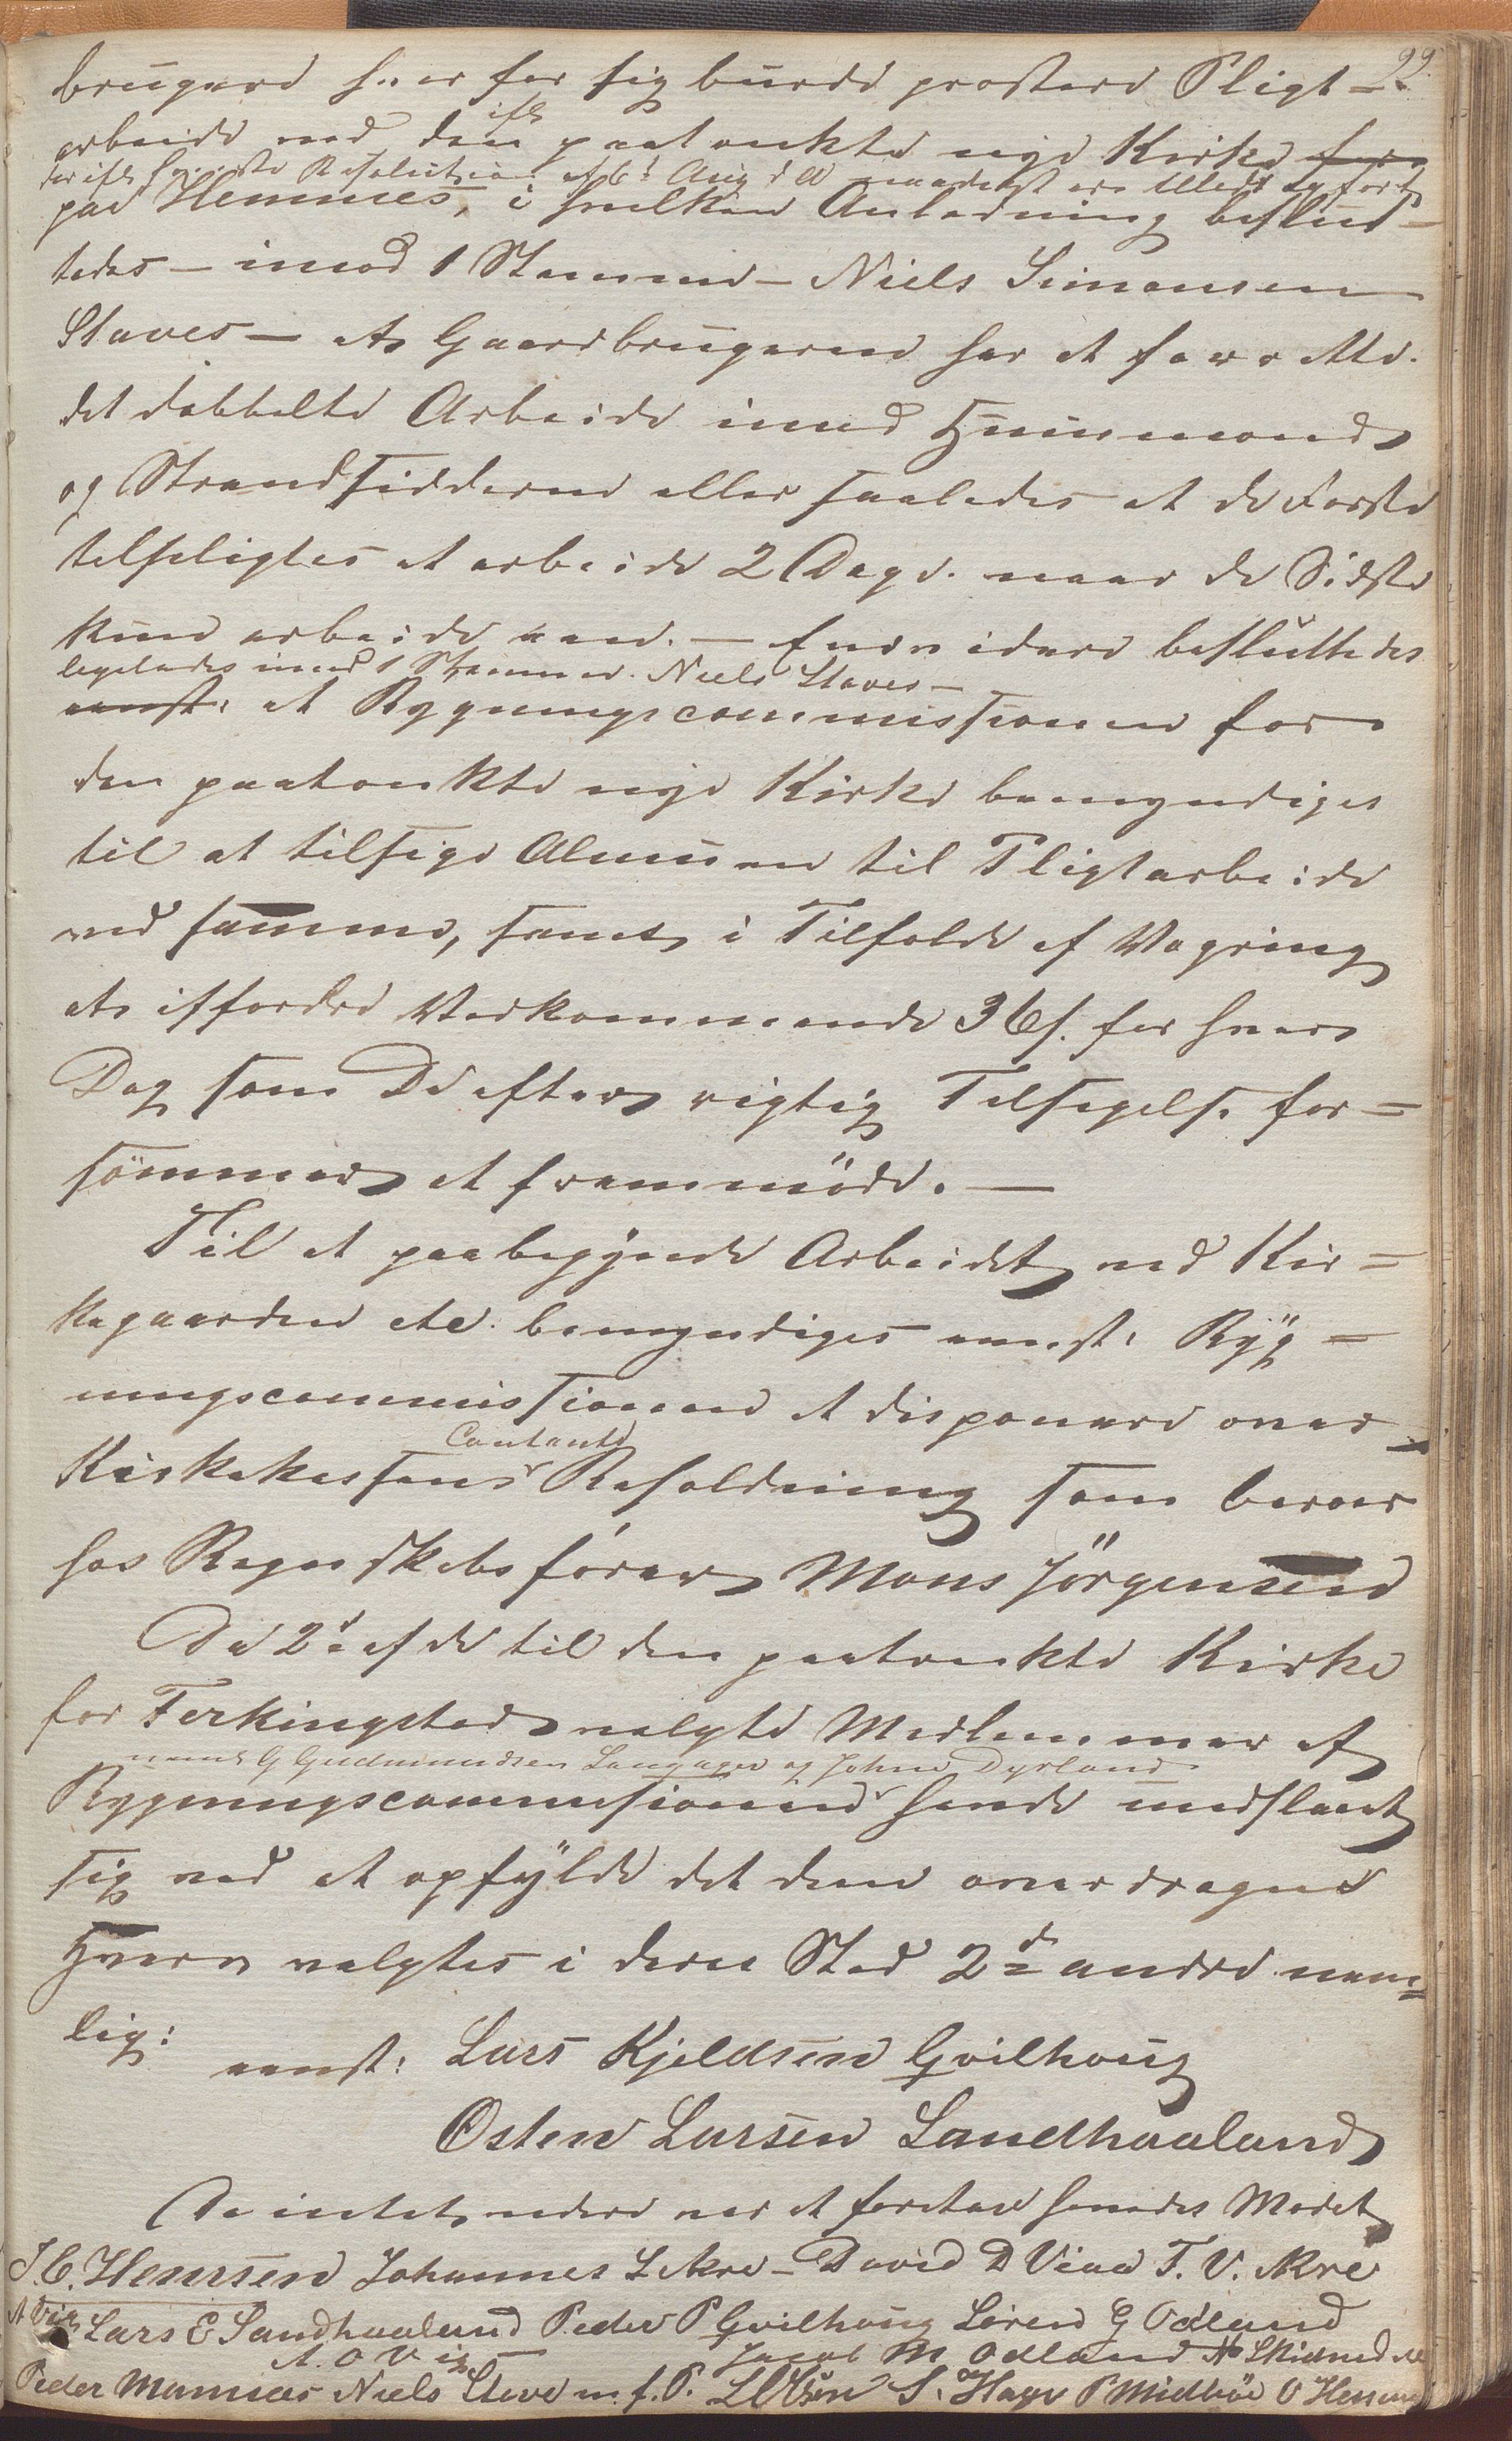 99.
brugere hver for sig burde præstere Pligt-
arbeide ved den paatænkte nye Kirke
der ifl høieste Resolution af 6te Aug d A naadigst er tilladt opført
paa Hemnes, i hvilken Anledning beslut-
tedes – imod 1 Stemme – Niels Simonsen
Staves – At Gaardbrugerne har at forrette
det dobbelte Arbeide imod Huusmænd
og Strandsidderne eller saaledes at de Første
tilpligtes at arbeide 2 Dage naar de Sidste
kun arbeide een. – Endvidere besluttedes
ligeledes imod 1 Stemme Niels Staves –
at Bygningscommissionen for
den paatænkte nye Kirke bemyndiges
til at tilsige Almuen til Pligtarbeide
ved samme, samt i Tilfælde af Vægring
at affordre Vedkommende 36 s. for hver
Dag som De efter rigtig Tilsigelse for-
sømmer at fremmøde. –
Til at paabegynde Arbeidet ved Kir-
kegaarden etc. bemyndiges Byg-
ningscommissionen at disponere over
Contante
Kirkekassens Beholdning som beroer
hos Regnskabsfører Mons Jørgensen
Da 2de af de til den paatænkte Kirke
for Ferkingstad valgte Medlemmer af
G Gudmundsen Langager og John Dyrland
Bygningscommissionen havde undslaaet
sig ved at opfylde det dem overdragne
Hverv valgtes i deres Sted 2de andre nem-
lig:
Lars Kjeldsen Qvilhoug
Osten Larsen Sandhaaland
Da intet videre var at foretage hævedes Mødet
J. C. Hemsen Johannes L Akre – David D Viea T. V. Akre
Lars E Sandhaaland Peder P Qvilhoug Sören G Odland
A. O Vig Jacob M Odland
Peder Munnæs Niels Stave m. f. P. S. Hage P Midböe O Hemnes